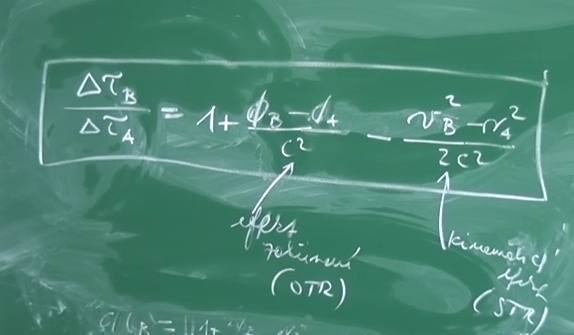 Δτ_B / Δτ_A = 1 + (ϕ_B − ϕ_A) / c² − (v_B² − v_A²) / 2c²
efekt
(OTR)
kinematický
efekt
(STR)